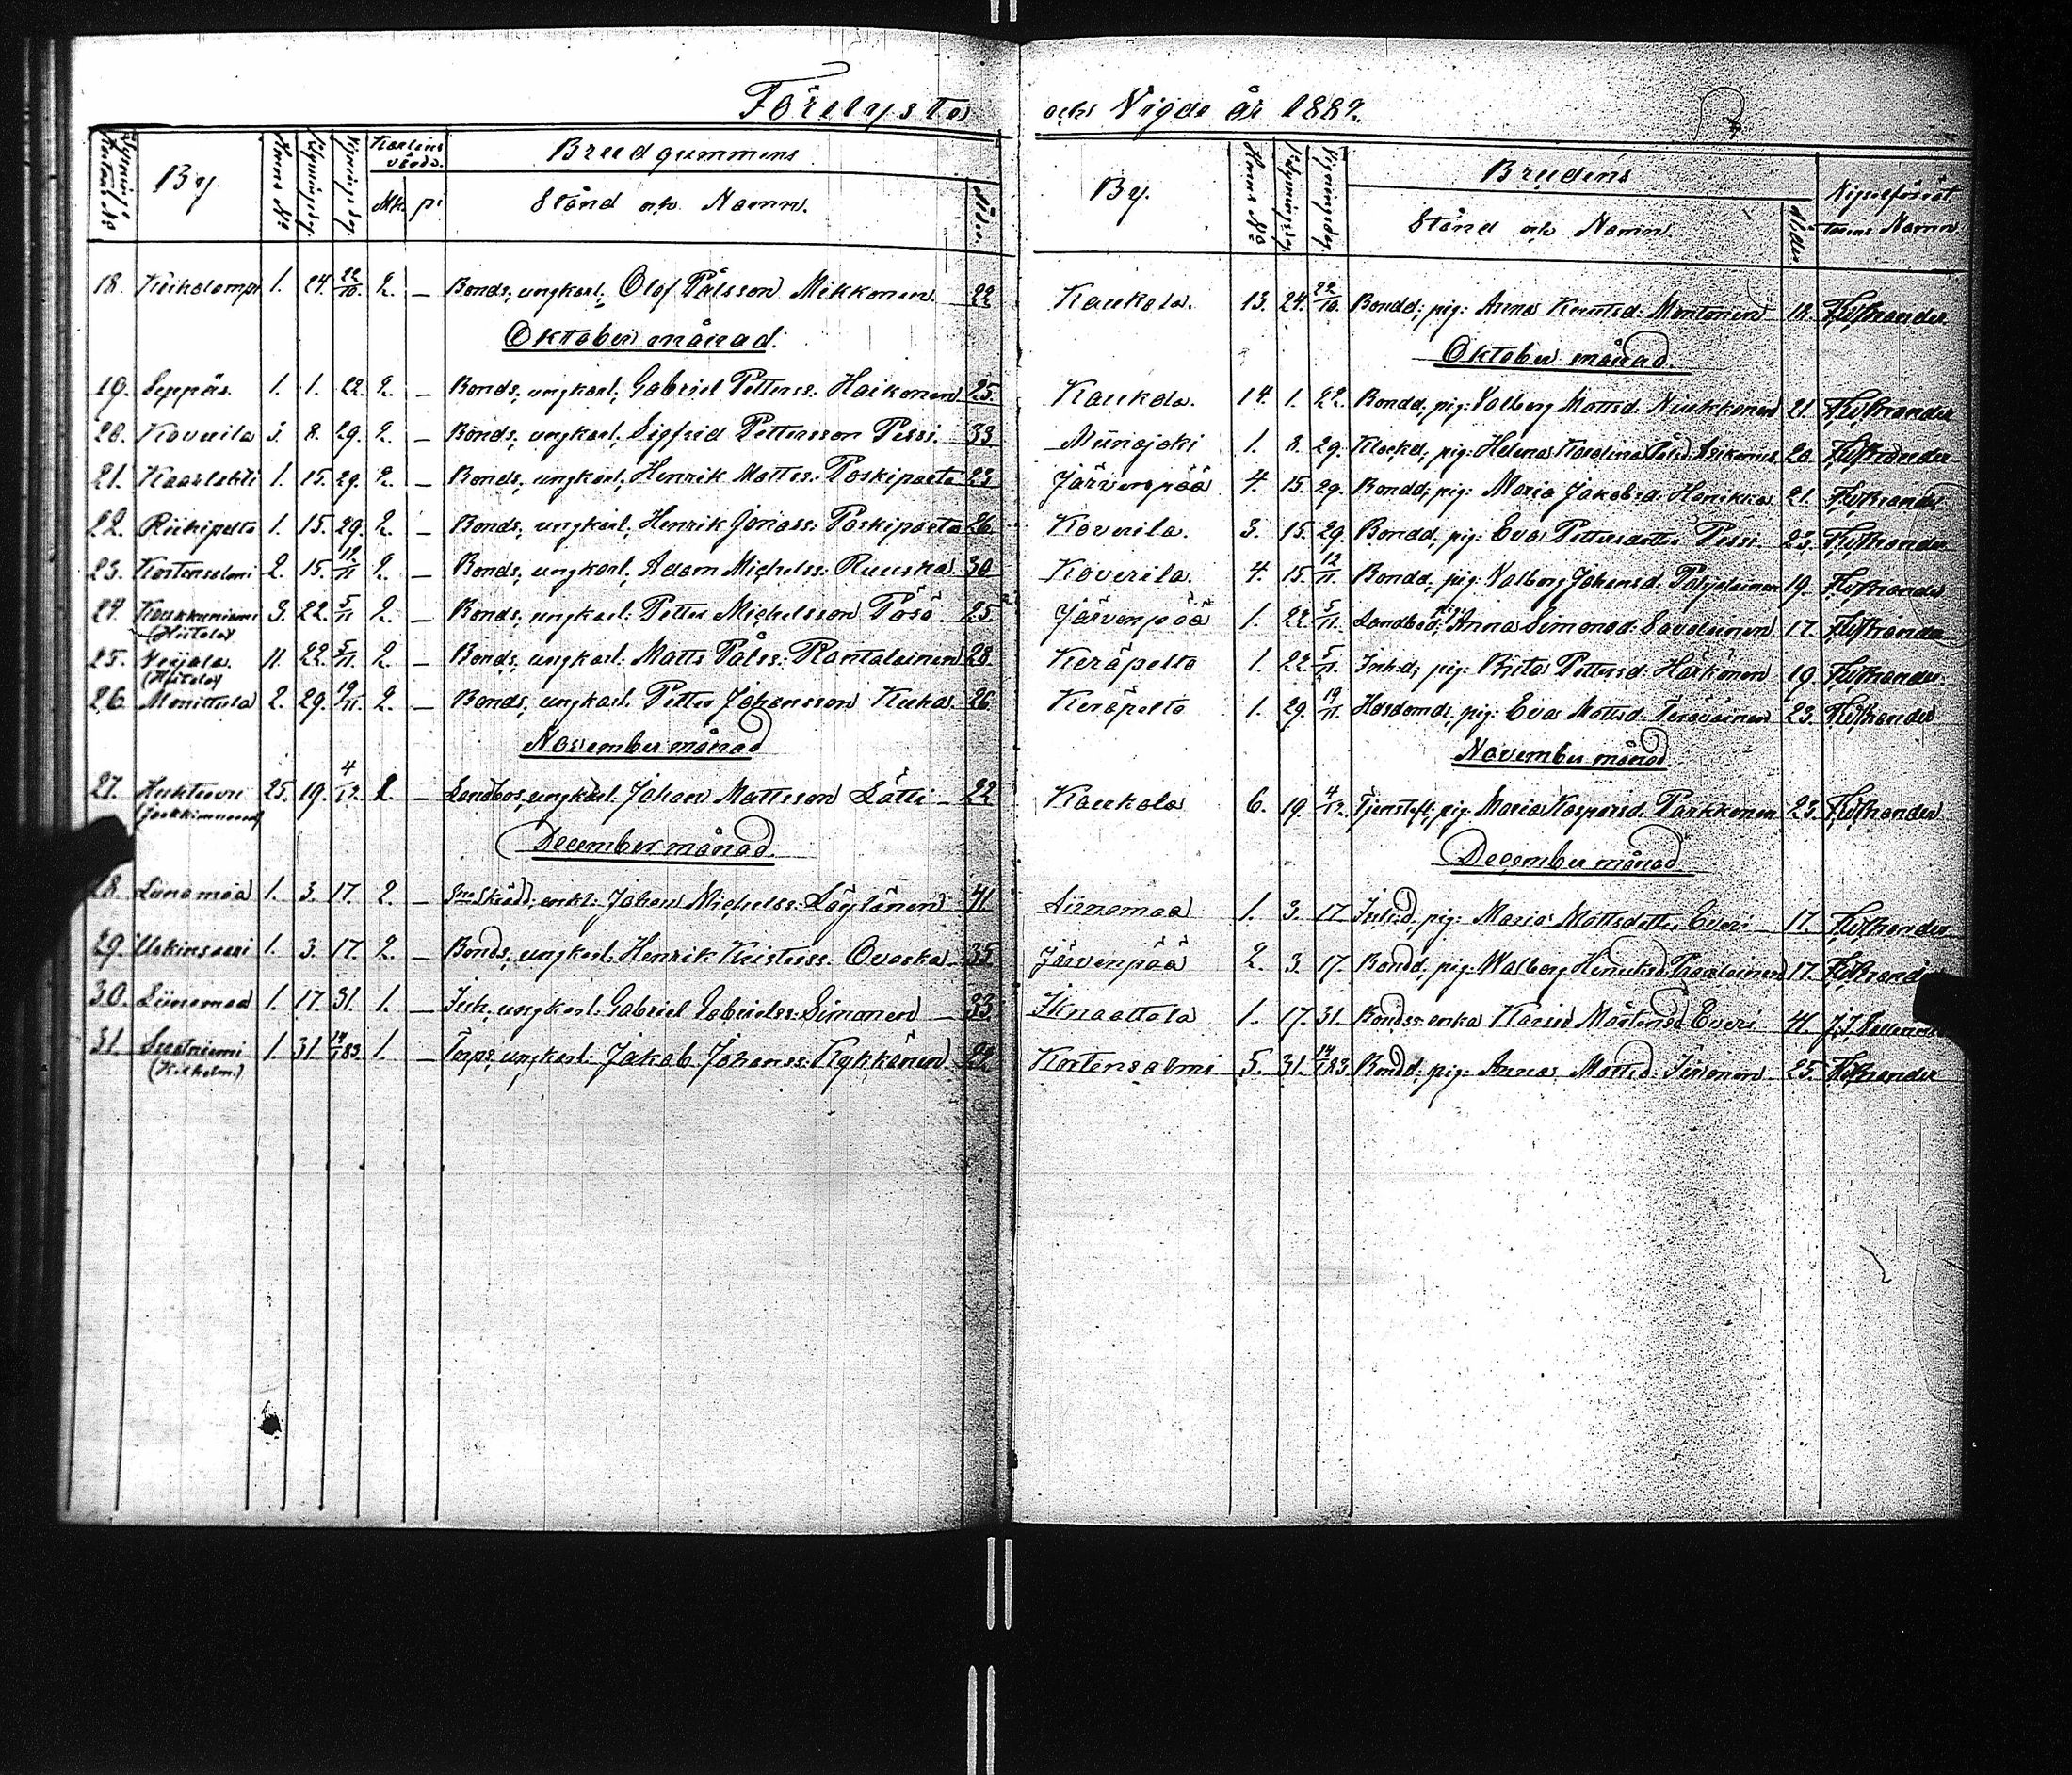 Förelysta och Vigde år 1882.
Lysnings By. Hems No Lysningsdag. Vigningsdag. Kartens värde. Brudgummens Ålder. By. Hems No Lysningsdag. Vigningsdag. Brudens Ålder Vigselförrät-
Kartans No Mk. pi Stånd och Namn. Stånd och Namn. tarens Namn
18. Kuikolampi 1. 24. 22/10. 2. — Bonds; ungkarl; Olof Pålsson Mikkonen. 22 Kaukola. 13. 24. 22/10. Bondd; pig: Anna Knutsd: Montonen 18.
Oktober månad. Oktober månad.
19. Seppäs. 1. 1. 22. 2. — Bonds; ungkarl; Gabriel Petterss: Haikonen 25. Kaukola. 14. 1. 22. Bondd; pig: Valborg Mattsd. Niukkanen 21.
20. Koverila 3. 8. 29. 2. — Bonds; ungkarl; Sigfrid Pettersson Pessi. 33 Miinajoki 1. 8. 29. Klockd; pig: Helena Karolina 20
21. Kaarlahti 1. 15. 29. 2. — Bonds; ungkarl; Henrik Mattss: Poskiparta 23 Järvenpää 4. 15. 29. Bondd; pig: Maria Jakobsd. Hanikka 21.
22. Riihipelto 1. 15. 29. 2. — Bonds; ungkarl; Henrik Jonass: Poskiparta 26 Koverila. 3. 15. 29. Bondd; pig: Eva Pettersdotter Pessi 23.
23. Kortensalmi 2. 15. 12/11 2. — Bonds; ungkarl; Adam Michelss: Ruuska 30 Koverila. 4. 15. 12/11. Bondd; pig: Valborg Johansd. 19.
24. Kaukkaniemi 3. 22. 5/11 2. — Bonds; ungkarl: Petter Michelsson Pösö. 25 Järvenpää 1. 22. 5/11. Landbod; pig: Anna Simonsd: Savolainen 17.
(Hiitola)
25. Veijala 11. 22. 5/11. 2. — Bonds; ungkarl: Matts Pålss: Rantalainen 28 Keräpelto 1. 22. 5/11. Inh:d; pig: Brita Pettersd. Häkönen 19
(Hiitola)
26. Monittula 2. 29. 19/11. 2. — Bonds; ungkarl. Petter Johansson Kuha. 26 Keräpelto 1. 29. 19/11. pig: Eva Mattsd. Teräväinen 23.
November månad November månad
27. Huhtervu 25. 19. 4/12. 2. — Landbos; ungkarl. Johan Mattsson Lätti 22 Kaukola 6. 19. 4/12. Tjensteft; pig: Maria Kasparsd. Parkkonen 23.
(Jaakkimvaara)
December månad. December månad
28. Liinamaa 1. 3. 17. 2. — enkl: Johan Michelss: Löylönen 41 Liinamaa 1. 3. 17 Inh:d; pig: Maria Mattsdotter Everi 17.
29. Uskinsaari 1. 3. 17. 2. — Bonds; ungkarl. Henrik Kristerss: Ovaska 35 Järvenpää 2. 3. 17. Bondd; pig: Walborg Henriksd: Paavilainen 17.
30. Liinamaa 1. 17. 31. 1. — Inh; ungkarl. Gabriel Gabrielss: Simonen 33 Iknaattala 1. 17. 31. Bondss: enka Karin Mårtensd Everi 41.
31. Suotniemi 1. 31 14/1 83. 1. — Torps; ungkarl: Jakob Johanss: Kykkänen 22 Kortensalmi 5. 31. 14/1 83. Bondd; pig: Anna Mattsd: Iinonen 25.
(Kexholm.)